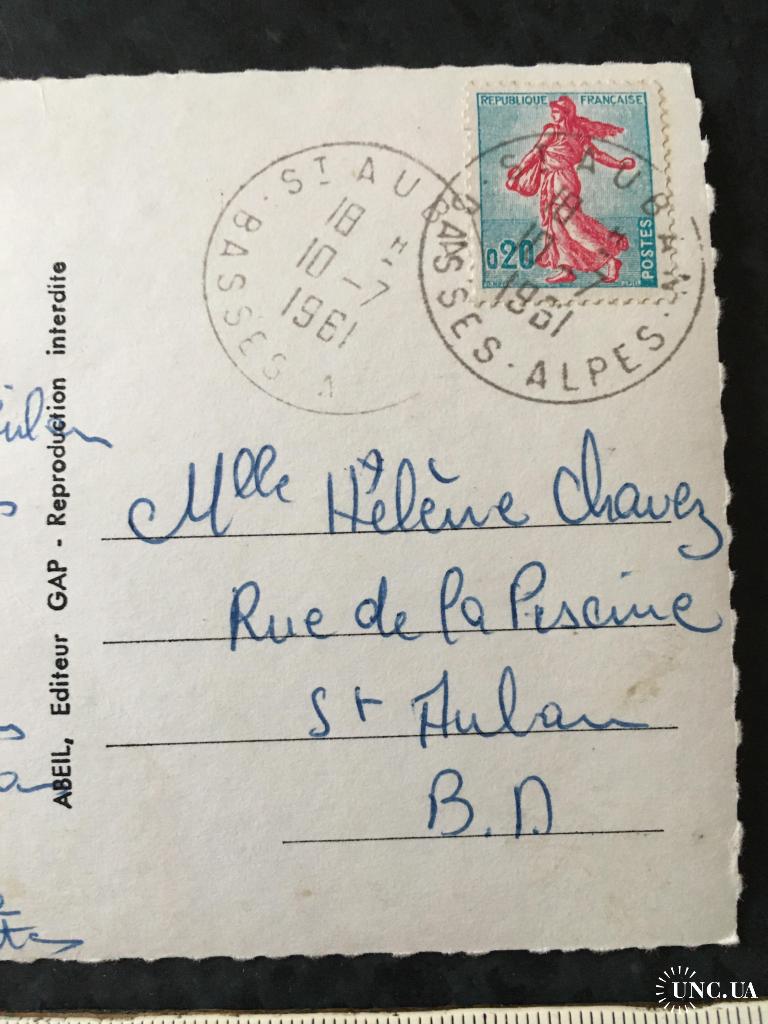 REPUBLIQUE FRANÇAISE
0.20
POSTES
ST AUBAN
18 H
10-7
1961
BASSES A
ST AUBAN
18 H
10-7
1961
BASSES-ALPES
ABEIL, Editeur GAP - Reproduction interdite
Mlle Hélène Chavez
Rue de la Piscine
St Auban
B.A
UNC.UA